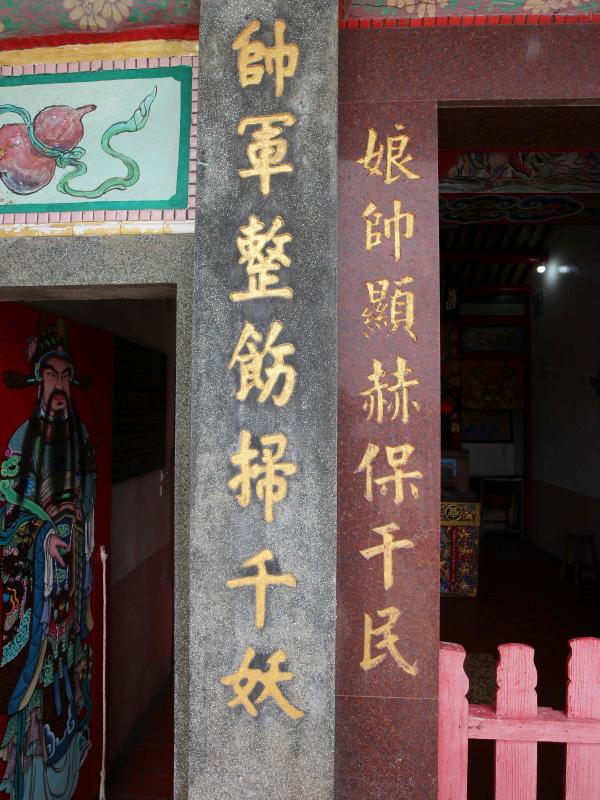 娘帥顯赫保千民
帥軍整飭掃千妖